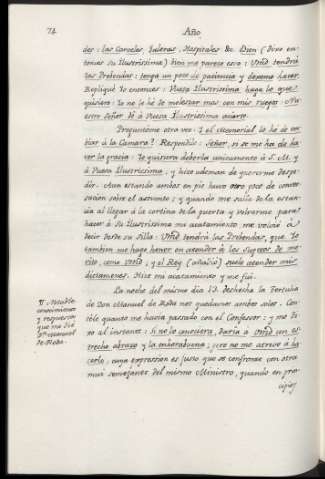 74
Año
des: las Carceles, Galeras, Hospitales &c. Bien (dixo en-
tonces su Ilustrisima) bien me parece esto: Vmd tendrá
las Prebendas: tenga un poco de paciencia y dexeme hacer.
Repliqué Yo entonces: Vuesa Ilustrisima haga lo que
quisiere: Yo no le hé de molestar mas con mis ruegos: Nu-
estro Señor dé á Vuesa Ilustrisima acierto.
Preguntóme otra vez: Y el Memorial lo hé de em-
biar á la Camara? Respondíle: Señor, si se me há de ha-
cer la gracia: Yo quisiera deberla unicamente á S. M. y
á Vuesa Ilustrisima; y hice ademan de quererme despe-
dir. Aun estando ambos en pie huvo otro poco de conver-
sacion sobre el asunto; y quando me salíe de la estan-
cia al llegar á la cortina de la puerta y volverme para
hacer á Su Ilustrisima mi acatamiento, me volvió á
decir desde su Silla: Vmd tendrá las Prebendas, que Yo
tambien me hago honor en atender á los Sugetos de me-
rito como Vmd; y el Rey (añadió) suele atender mis
dictamenes. Hice mi acatamiento y me fui.
La noche del mismo dia 13. deshecha la Tertulia
de Don Manuel de Roda nos quedamos ambos solos. Con-
téle quanto me havia pasado con el Confesor: y me di-
xo al instante: Si no le conociera, daría á Vmd un es-
trecho abrazo y la enhorabuena; pero no me atrevo á ha-
cerlo, cuya expresion es justo que se confronte con otra
mui semejante del mismo Ministro, quando en pro-
cimiento
y respuesta
que me dió
Dn Manuel
de Roda.